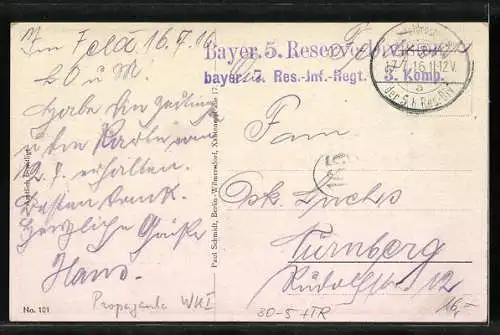 Im Feld 16.7.16
L O u M!
Habe den Zeilung
u die Karte vom
12.7. erhalten.
Besten Dank.
Herzliche Grüße
Hans.
Bayer. 5. Reserve-Division
bayer. 7. Res.-Inf.-Regt. 3. Komp.
17.7.16.11-12V.
a
der 5. b. Res. Div
Fam
Fuchs
Nürnberg
Rudolfstr 12
Paul Schmidt, Berlin-Wilmersdorf,
No. 101
Propaganda WKI
30-5 +TR
16,-